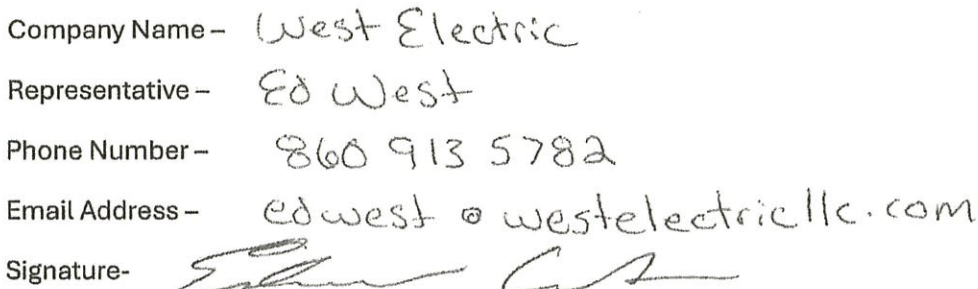 Company Name – West Electric
Representative – Ed West
Phone Number – 860 913 5782
Email Address – edwest@westelectricllc.com
Signature-